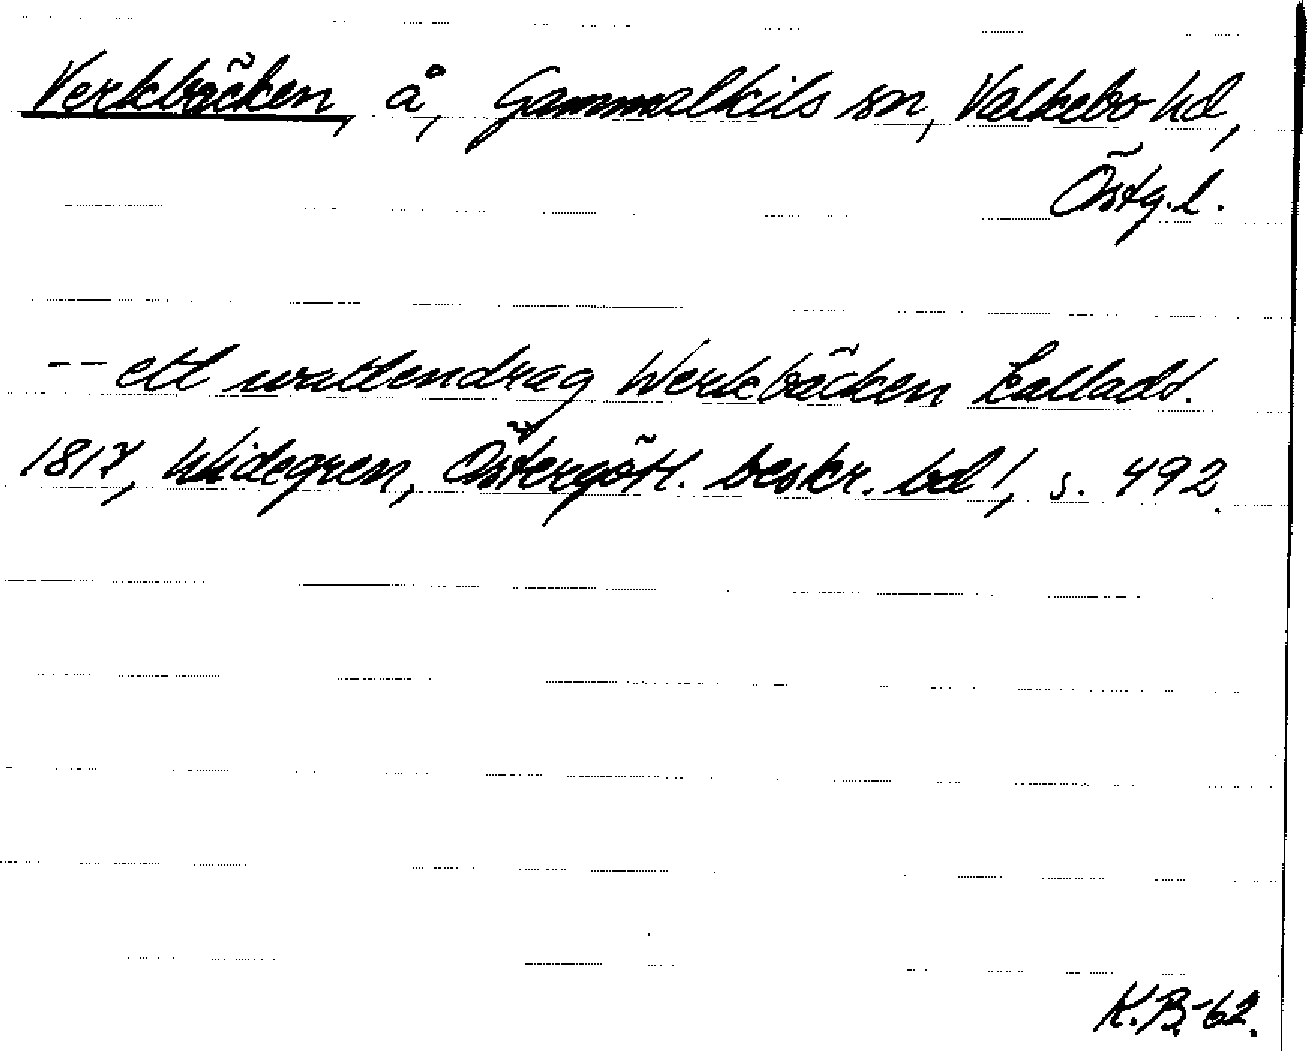 Verkebäcken, å, Gammalkils sn, Valkebo hd,
Östg.l.
-- ett wattendrag Werkebäcken kalladt.
1817, Widegren, Östergötl. beskr. bd 1, s. 492.
K.B.-62.